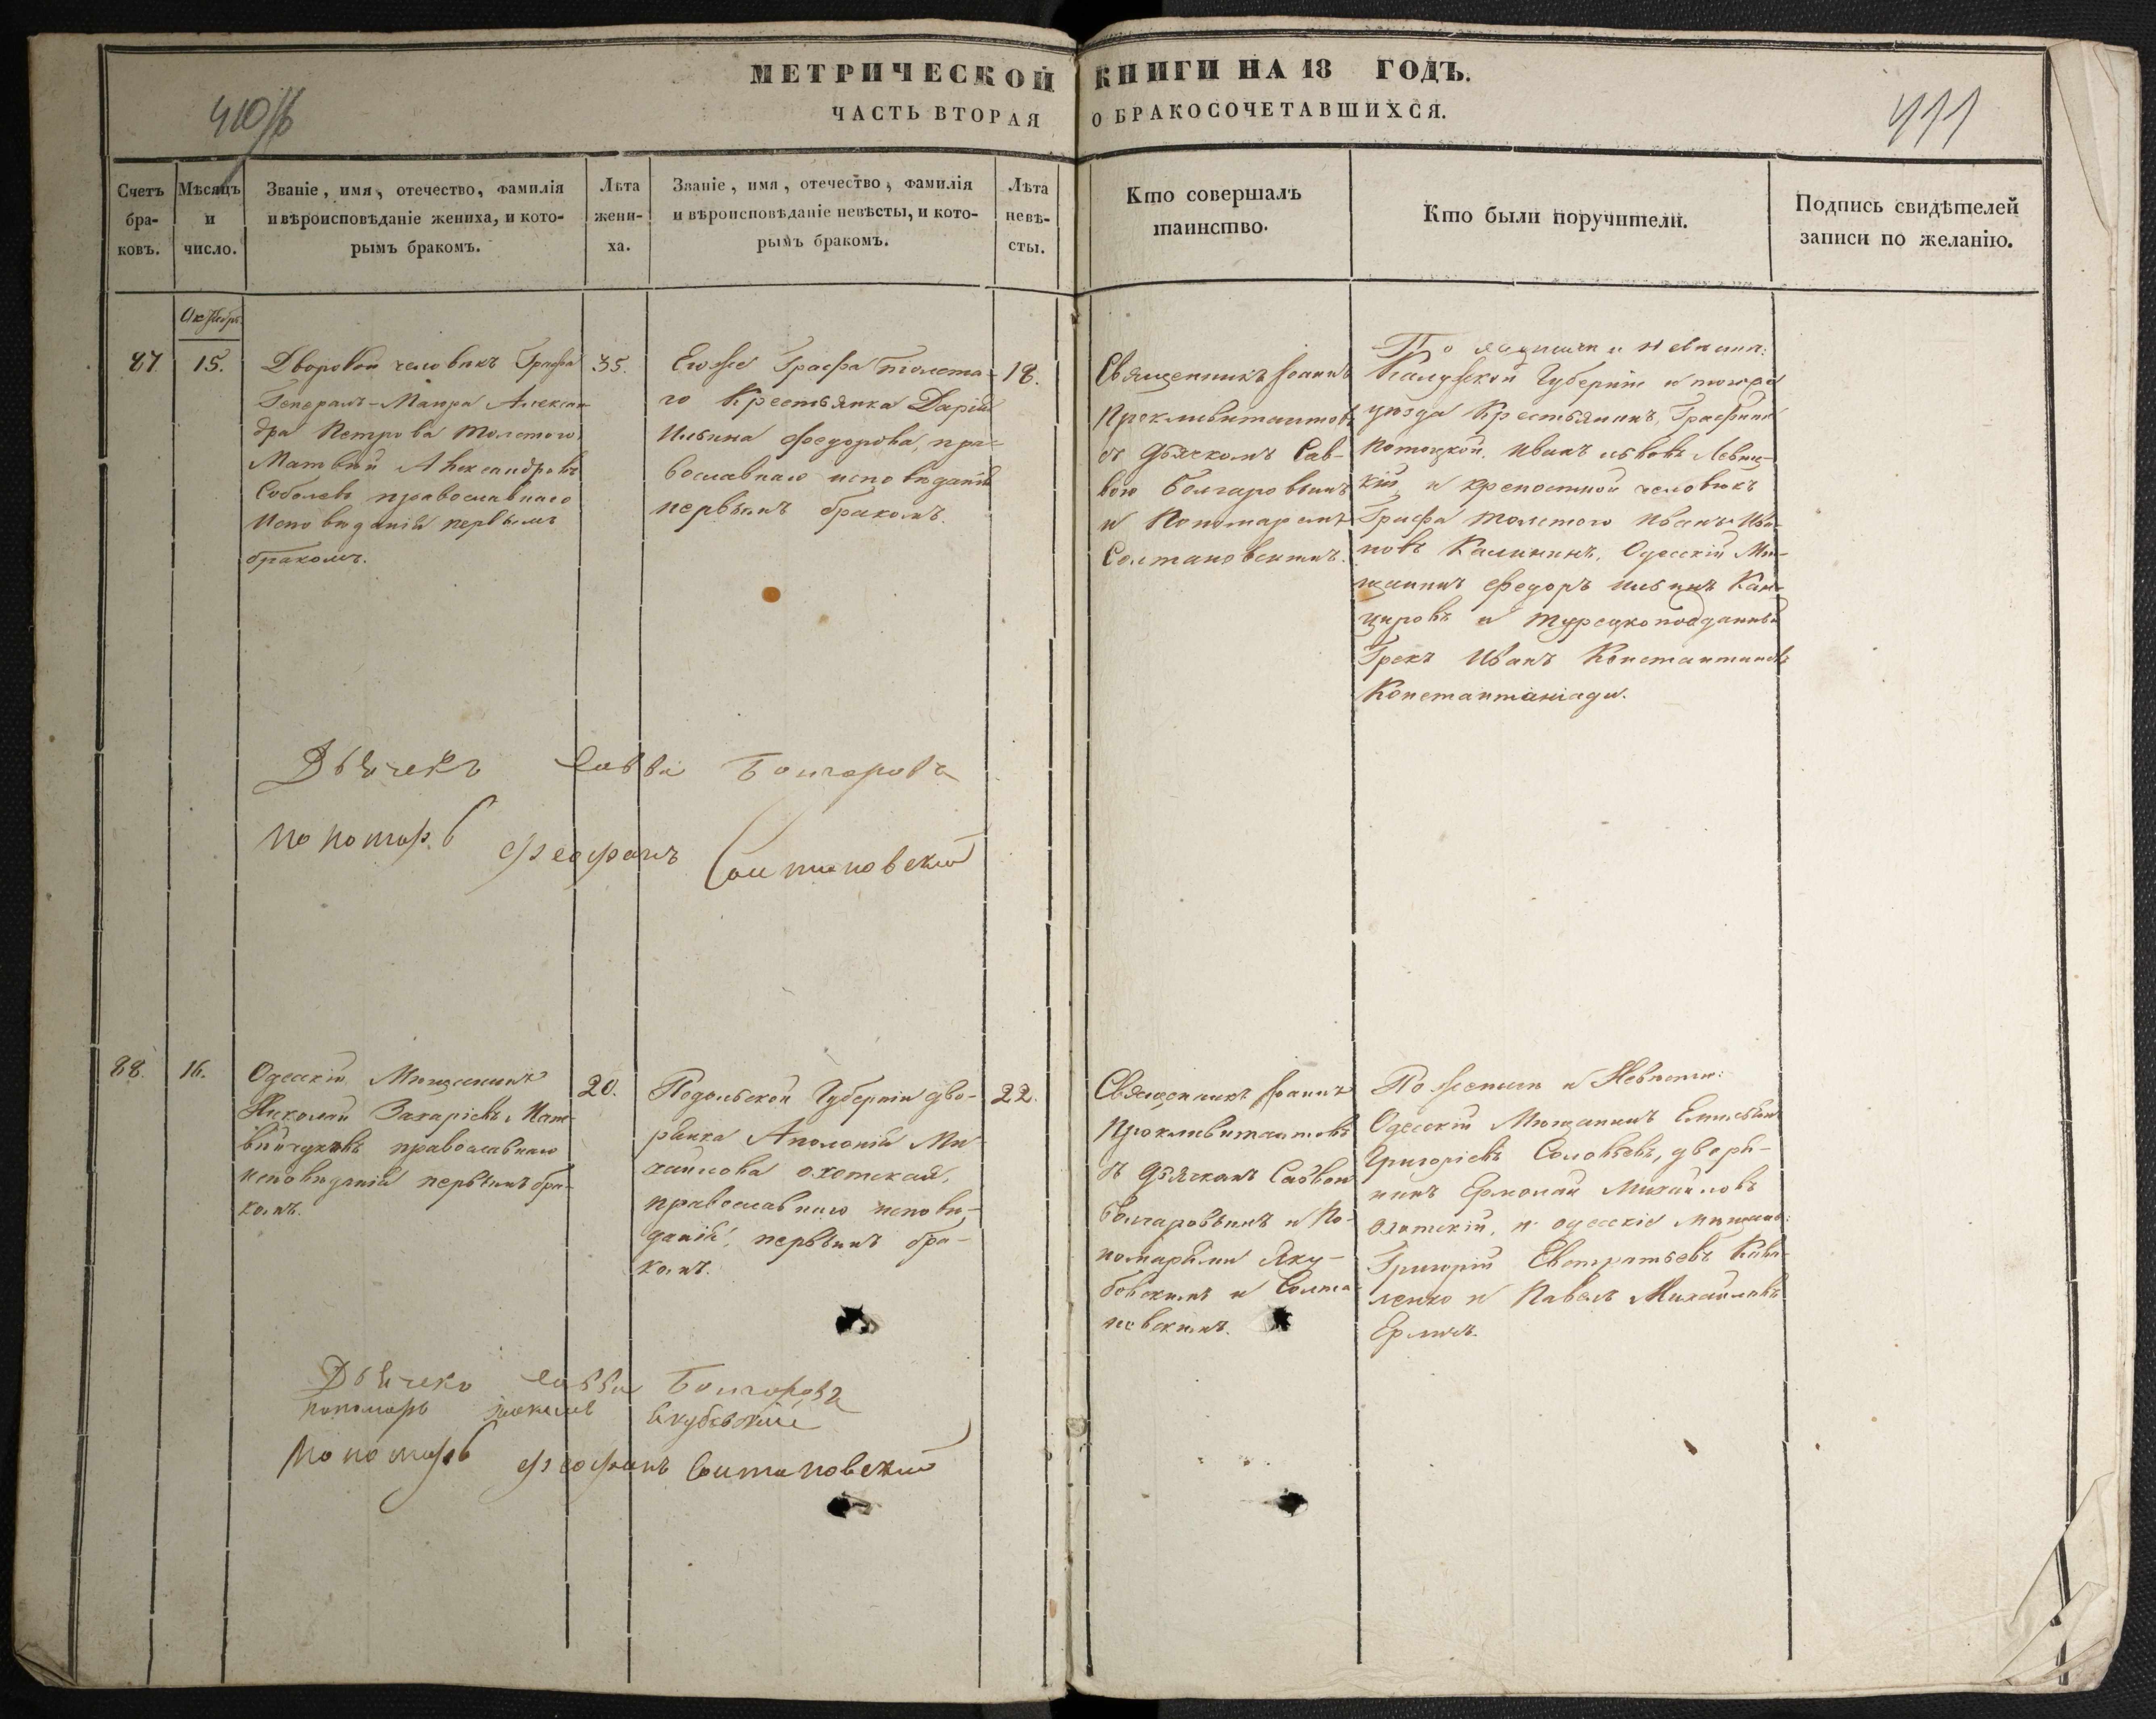 МЕТРИЧЕСКОЙ КНИГИ НА 18 ГОДЪ.
ЧАСТЬ ВТОРАЯ О БРАКОСОЧЕТАВШИХСЯ.
411
Счетъ
бра-
ковъ.
Мѣсяцъ
и
число.
Званіе, имя, отечество, фамилія
и вѣроисповѣданіе жениха, и кото-
рымъ бракомъ.
Лѣта
жени-
ха.
Званіе, имя, отечество, фамилія
и вѣроисповѣданіе невѣсты, и кото-
рымъ бракомъ.
Лѣта
невѣ-
сты.
Кто совершалъ
таинство.
Кто были поручители.
Подпись свидѣтелей
записи по желанію.
Октябрь
87
15.
Дворовой человѣкъ Графа
Генералъ-Маіора Алексан
дра Петрова Толстого,
Матвѣй Александровъ
Соболевъ православнаго
исповѣданія первымъ
бракомъ.
35.
Егоже Графа Толста-
го Крестьянка Дарія
Ильина Федорова, пра-
вославнаго исповѣданія
первымъ бракомъ.
18.
Священникъ Іоаннъ
съ Дьячкомъ Сав-
вою Болгаровымъ
и Пономаремъ
Солтановскимъ.
По и
Калужской Губерніи и тогоже
уѣзда Крестьянинъ, Графини
Потоцкой, Иванъ Левиц-
кій и крепостной человѣкъ
Графа Толстого Иванъ Ива-
новъ Калининъ, Одесскій Мѣ-
щанинъ Федоръ Ильинъ
и Турецкоподданный
Грекъ Иванъ Константиновъ
Константаніади.
Дьячекъ Савва Болгаровъ
Пономарь Феофанъ Солтановскій
88.
16.
Одесскій Мѣщанинъ
Николай Захаріевъ Мат-
вѣйчуковъ православнаго
исповѣданія первымъ бра-
комъ.
20.
Подольской Губерніи дво-
рянка Аполонія Ми-
хайлова Охотская,
православнаго исповѣ-
данія, первымъ бра-
комъ.
22.
Священникъ Іоаннъ
съ Дьячкомъ Саввою
Болгаровымъ и По-
номарями Яку-
бовскимъ и Солта-
новскимъ.
По Женихѣ и Невѣстѣ:
Одесскій Мѣщанинъ Емельянъ
Григоріевъ Соловьевъ, дворя-
нинъ Ермолай Михайловъ
Охотскій, и одесскіе мѣщане:
Григорій Евстратьевъ Кова-
ленко и Павелъ Михайловъ
Дьячекъ Савва Болгаровъ
пономарь Якубовскій
Пономарь Феофанъ Солтановскій